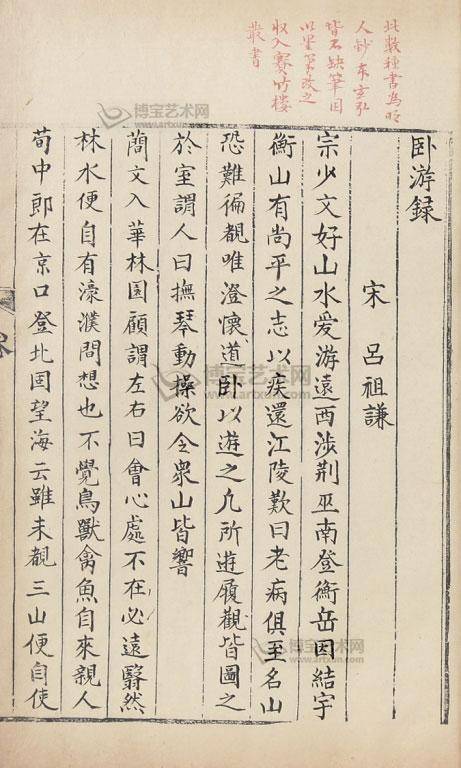 此數種書為明
人鈔本玄弘
皆不缺筆因
以墨筆改之
收入賽竹楼
叢書
卧游録
宋 呂祖謙
宗少文好山水爱游遠西涉荆巫南登衡岳因結宇
衡山有尚平之志以疾還江陵歎曰老病俱至名山
恐難徧覩唯澄懷道卧以遊之凢所遊履觀皆圖之
於室謂人曰撫琴動操欲令衆山皆響
蕳文入華林園顧謂左右曰會心處不在必遠翳然
林水便自有濠濮間想也不覺鳥獸禽魚自來親人
荀中郎在京口登北固望海云雖未覩三山便自使
博宝艺术网
www.artxun.com
博宝艺术网
www.artxun.com
博宝艺术网
www.artxun.com